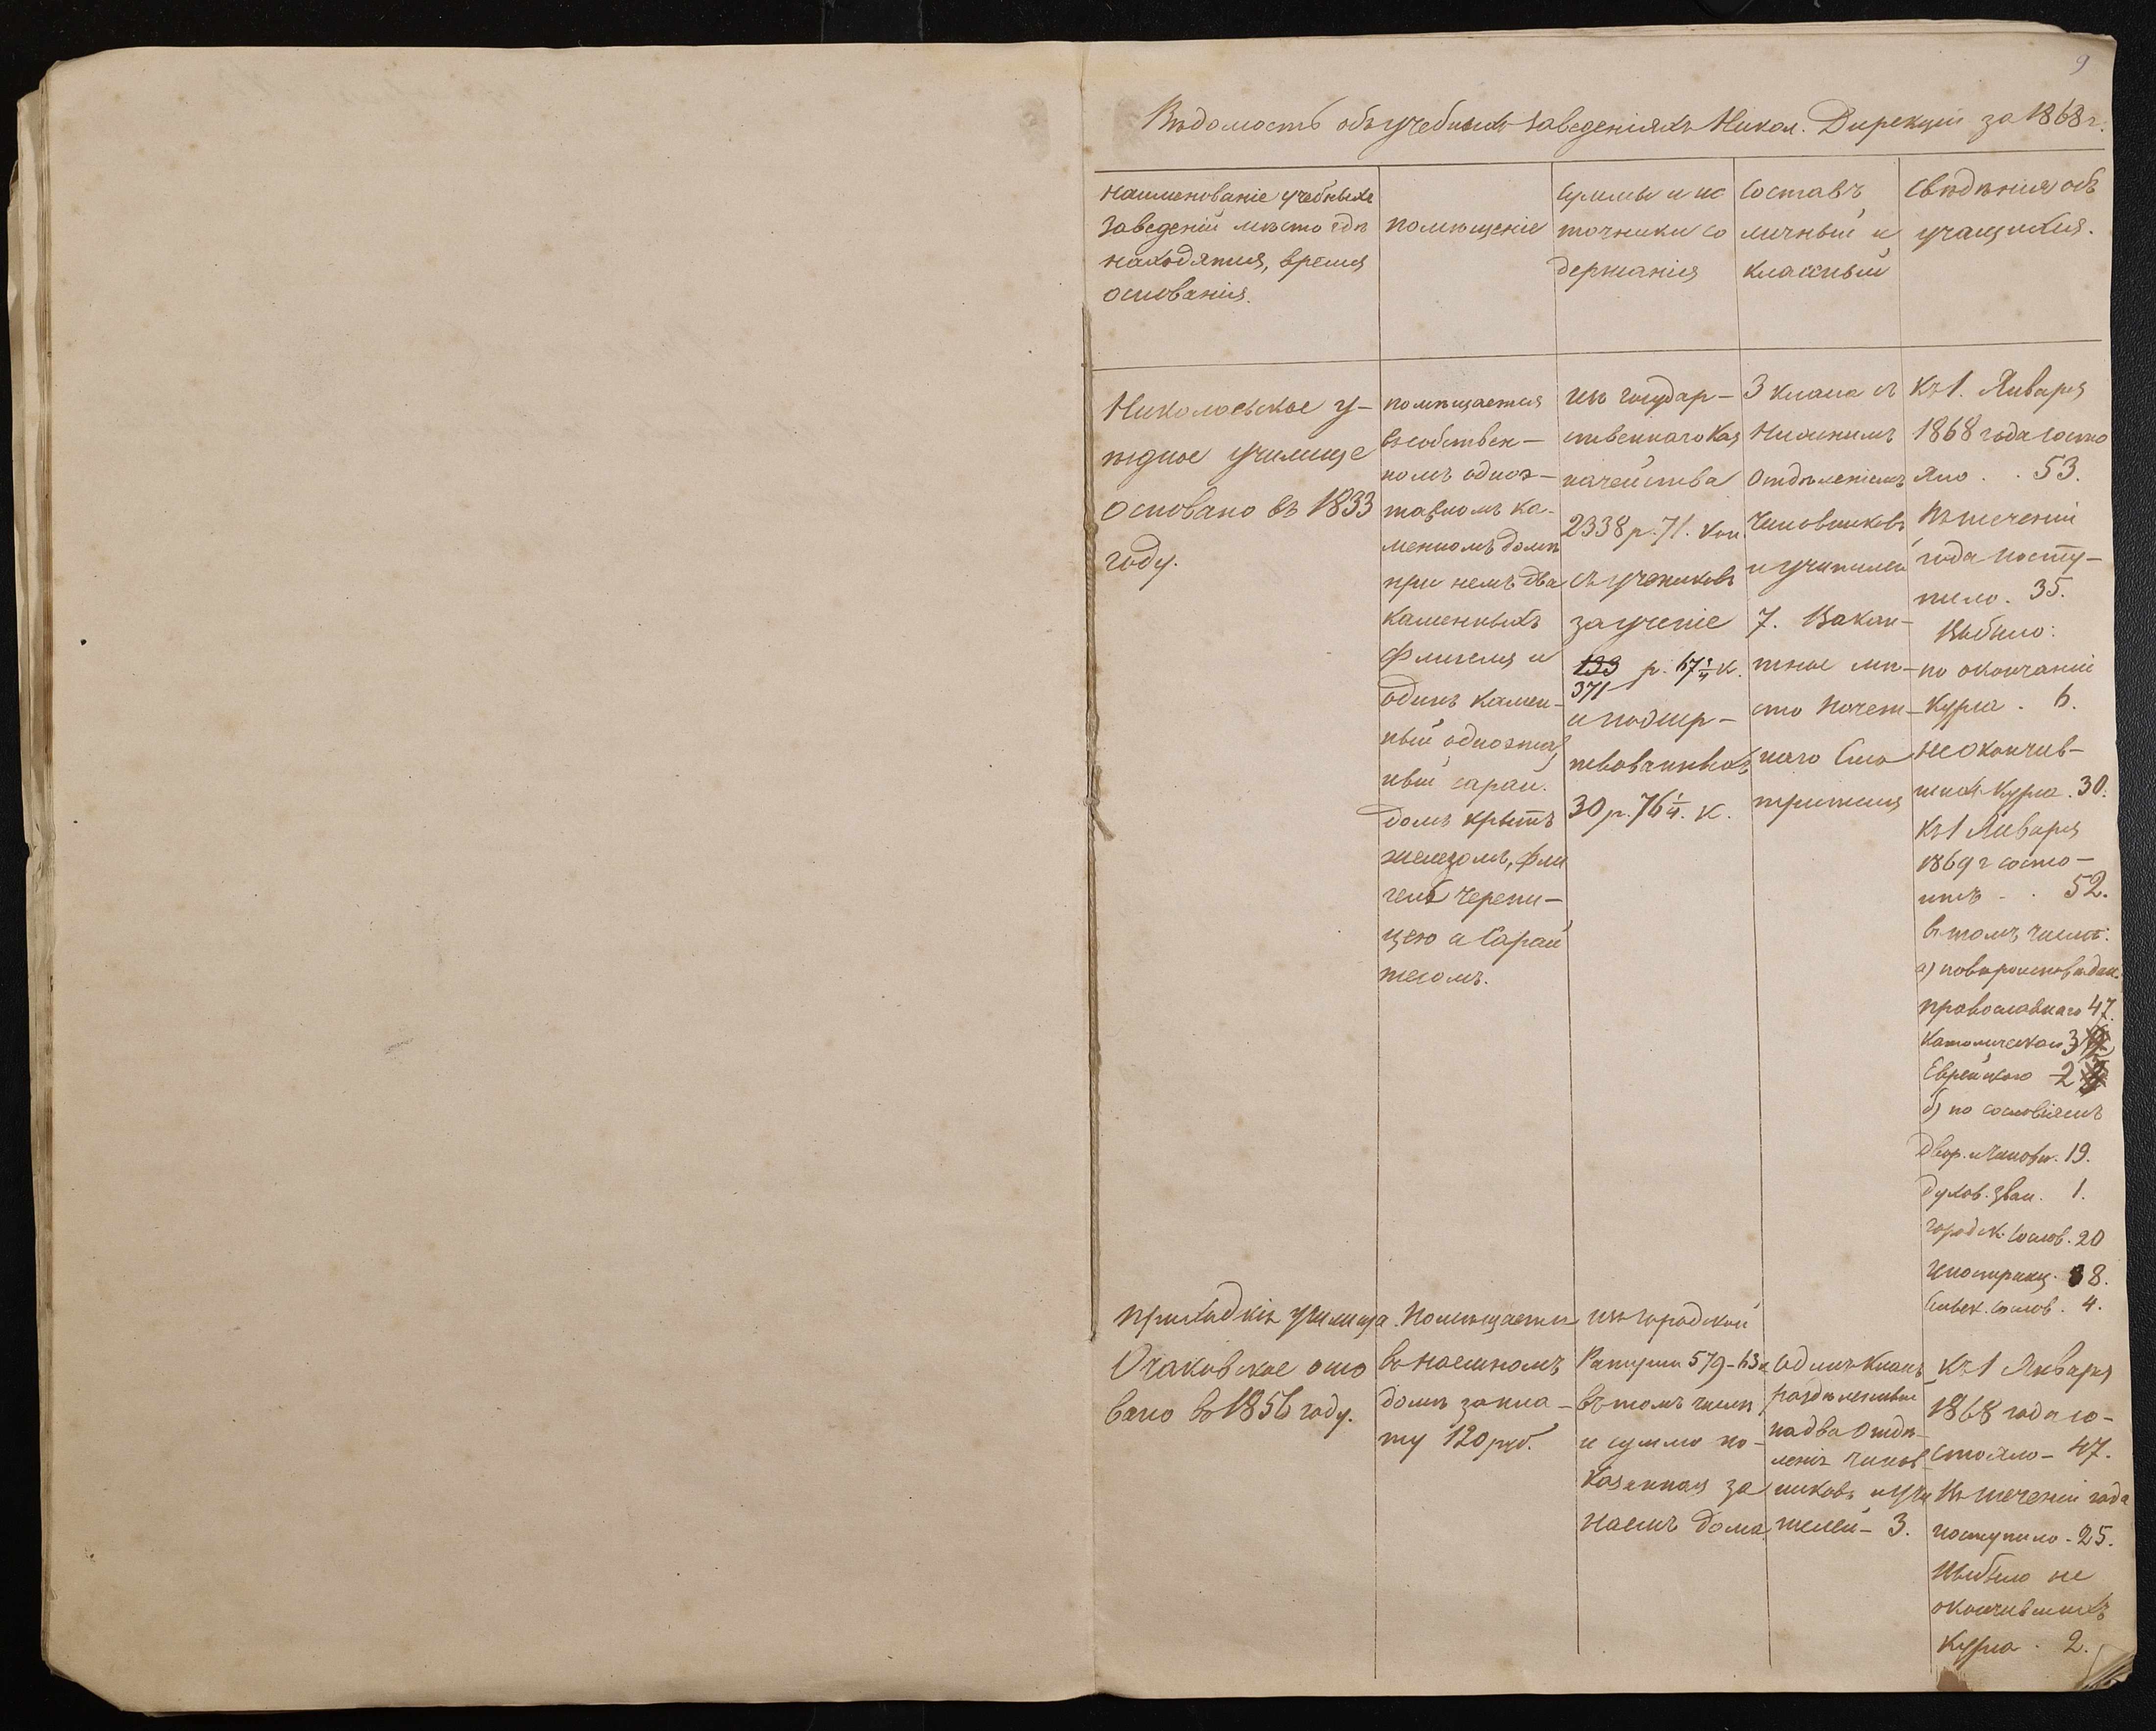 9
Вѣдомость объ учебныхъ заведеніяхъ Никол. Дирекціи за 1868 г.
Наименованіе учебныхъ
заведеній мѣсто гдѣ
находятся, время
основанія.
помѣщеніе
Суммы и ис
точники со
держанія
Составъ
личный и
классный
Свѣдѣнія объ
учащихся.
Николаевское у-
ѣздное училище
основано въ 1833
году.
помѣщается
въ собствен-
номъ одноэ-
тажномъ ка-
менномъ домѣ
при немъ два
каменныхъ
флигеля и
одинъ камен-
ный одноэтаж
ный сарай.
домъ крытъ
железомъ, фли
гель черепи-
цею а Сарай
тесомъ.
изъ государ-
ственнаго Каз
начейства
2338 р. 71. коп.
съ учениковъ
за ученіе
133 р. 67 1/4 к.
371
и пожер-
твованныхъ
30 р. 76 1/4. к.
3 класса съ
Низшимъ
Отдѣленіемъ
Чиновниковъ
и учителей
7. Вакан-
тное мѣ-
сто Почет-
наго Смо
трителя
Къ 1. Января
1868 года состо
яло . . 53.
Въ теченіи
года посту-
пило. 35.
Выбыло:
по окончаніи
Курса . 6.
неокончив-
шихъ Курса . 30.
Къ 1 Января
1869 г состо-
итъ . . 52.
въ томъ числѣ:
а) по вѣроисповѣдан.
православнаго 47.
Католическаго 3
Еврейскаго 2
б) по сословіямъ
Двор. и Чиновн. 19.
духов. зван. 1.
городск. Сослов. 20
Иностранц. 8.
Сельск. сослов. 4.
приходскія училища
Очаковское осно
вано въ 1856 году.
Помѣщается
въ наемномъ
домѣ за пла-
ту 120 руб.
изъ городской
Ратуши 579-63 к
въ томъ числѣ
и сумма по-
казанная за
наемъ дома
Одинъ классъ
раздѣленный
на два Отдѣ-
ленія чинов
никовъ и учи
телей - 3.
Къ 1 Января
1868 года со-
стояло - 47.
Въ теченіи года
поступило - 25.
Выбыло не
окончившихъ
Курса . 2.